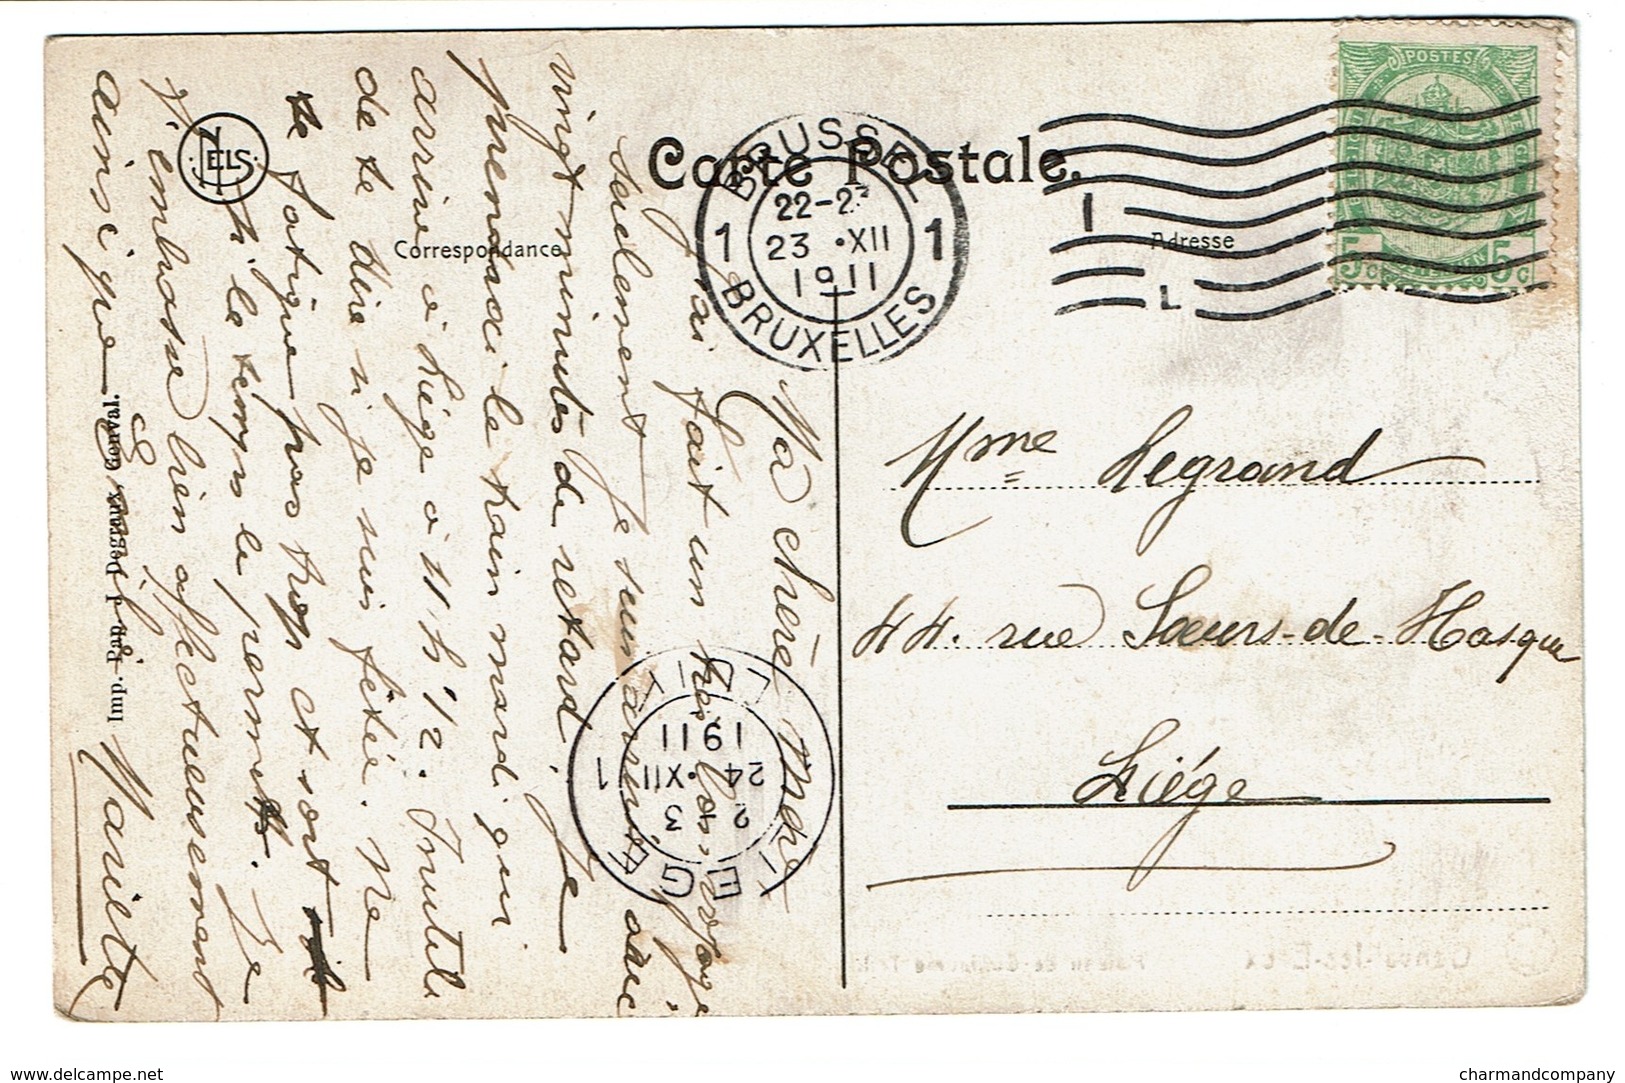 Carte Postale.
Correspondance
Adresse
POSTES
5c
5c
BRUSSEL
22-2
23 · XII
1911
1
1
BRUXELLES
1
L
NELS
Mme Legrand
44. rue Soeurs-de-Hasque
Liége
Ma chère Mère
J'ai fait un très bon voyage
seulement je suis arrivée avec
vingt minutes de retard. Je
prendrai le train mardi qui
arrive à Liége à 11 h 1/2. Inutile
de te dire si je suis fêtée. Ne
te fatigue pas trop et sort
si le temps le permet. Je
t'embrasse bien affectueusement
ainsi que
Mariette
LUIK
1911
24 · XII
2 3
1
LIEGE
Imp. Pap. J. Degraux, Genval.
www.delcampe.net
charmandcompany